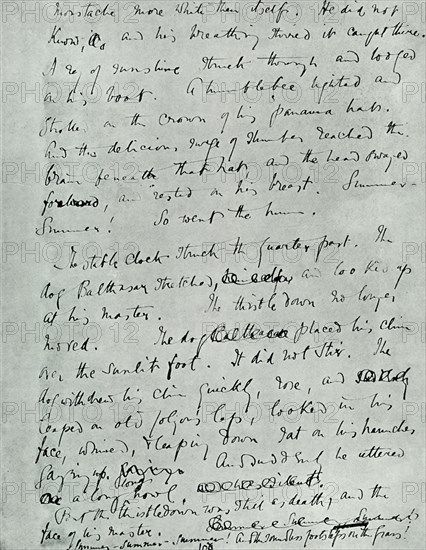 moustache more white than itself. He did not
know, and his breathing stirred it caught there.
A ray of sunshine struck through and lodged
on his boot. A humblebee lighted and
strolled on the crown of his panama hat.
And the delicious surge of slumber reached the
brain beneath that hat, and the head swayed
forward, and rested on his breast. Summer-
Summer! So went the hum.
The stable clock struck the quarter past. The
dog Balthasar stretched, and looked up
at his master. The thistledown no longer
moved. The dog placed his chin
over the sunlit foot. It did not stir. The
dog withdrew his chin quickly, rose, and
leaped on old Jolyon's lap, looked in his
face, whined, leaping down sat on his haunches
gazing up. And suddenly he uttered
a long, long howl.
But the thistledown was still as death, and the
face of his master.
Summer-Summer-Summer! And the soundless footsteps on the grass!